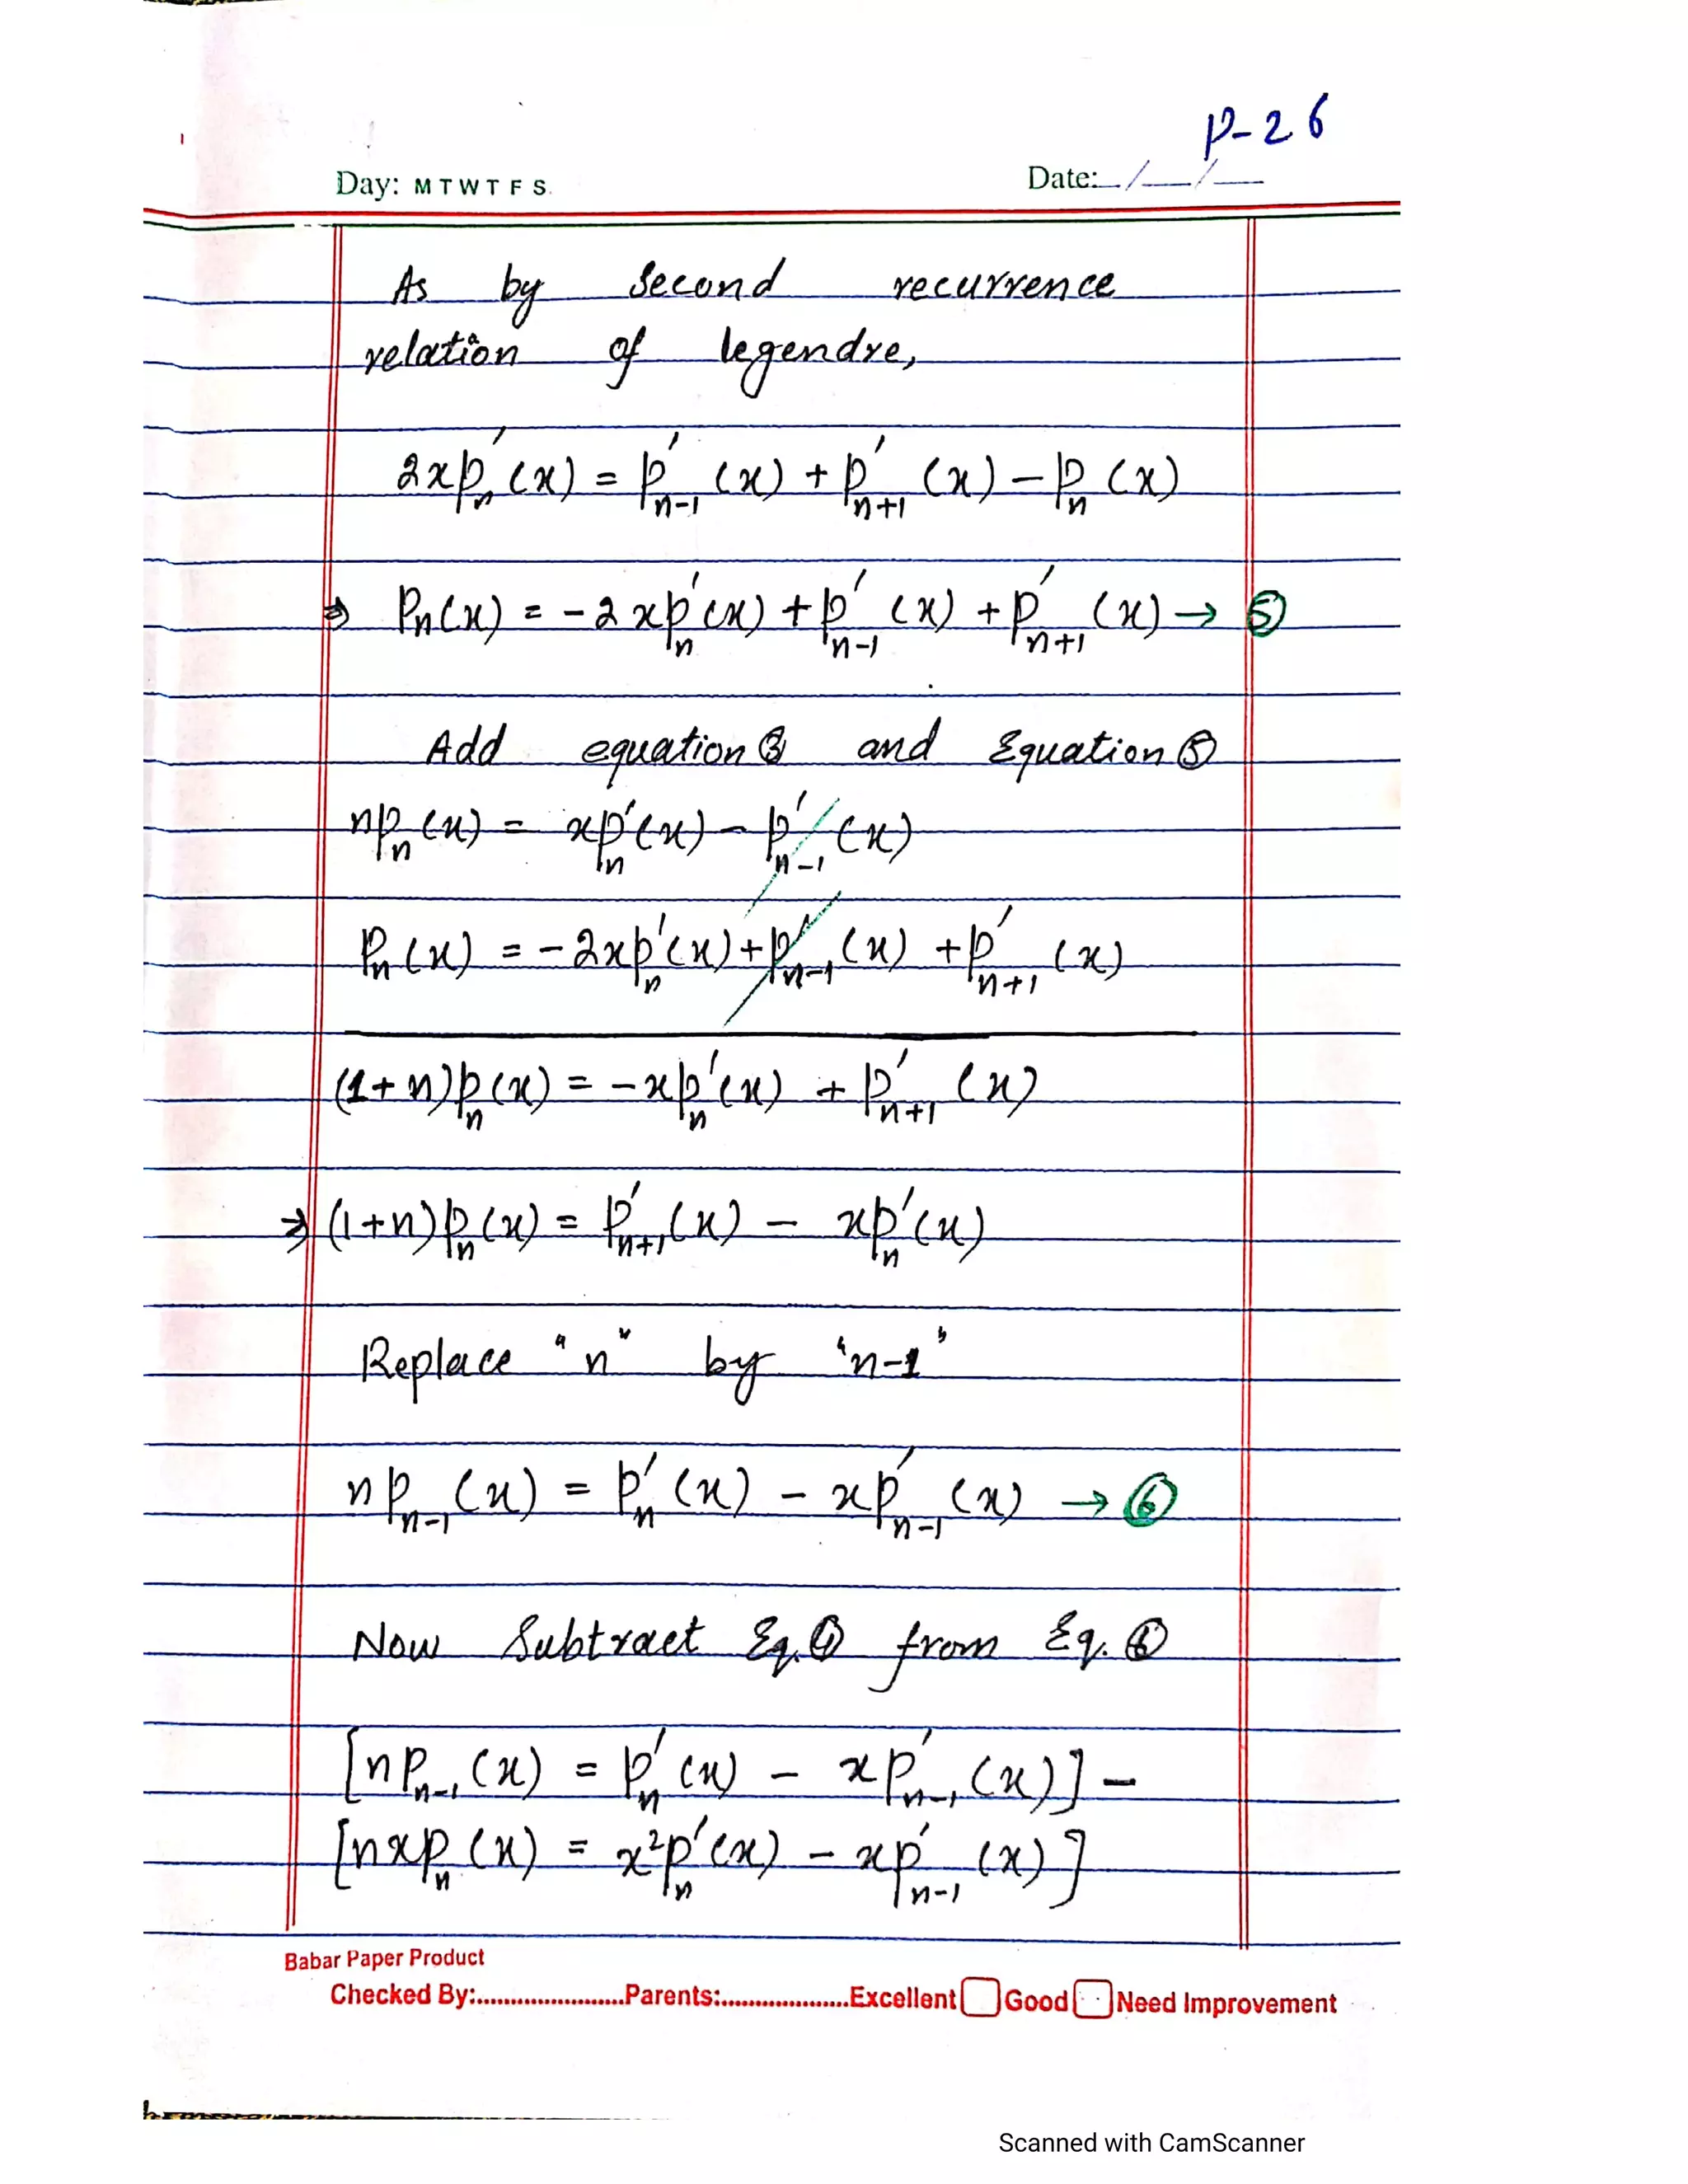 P-26
Day: M T W T F S.
Date: __/__/__
As by Second recurrence
relation of legendre,
2xp'ₙ(x) = p'ₙ₋₁(x) + p'ₙ₊₁(x) − pₙ(x)
⇒ Pₙ(x) = −2xp'ₙ(x) + p'ₙ₋₁(x) + p'ₙ₊₁(x) → ⑤
Add equation ③ and Equation ⑤
npₙ(x) = xp'ₙ(x) − p'ₙ₋₁(x)
Pₙ(x) = −2xp'ₙ(x) + p'ₙ₋₁(x) + p'ₙ₊₁(x)
(1+n)pₙ(x) = −xp'ₙ(x) + p'ₙ₊₁(x)
⇒ (1+n)pₙ(x) = p'ₙ₊₁(x) − xp'ₙ(x)
Replace "n" by "n-1"
npₙ₋₁(x) = p'ₙ(x) − xp'ₙ₋₁(x) → ⑥
Now Subtract Eq.④ from Eq.⑥
[npₙ₋₁(x) = p'ₙ(x) − xp'ₙ₋₁(x)] −
[nxpₙ(x) = x²p'ₙ(x) − xp'ₙ₋₁(x)]
Babar Paper Product
Checked By:......................Parents:...................Excellent Good Need Improvement
Scanned with CamScanner